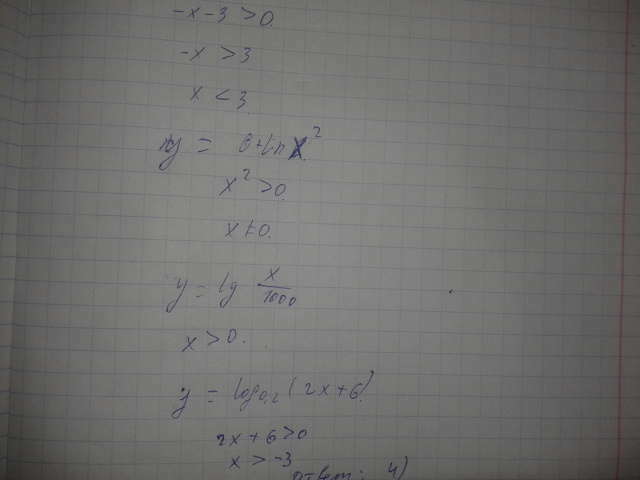 -x-3 >0
-x >3
x < 3
y = 6+ln x²
x² >0
x≠0.
y = lg x/1000
x >0.
y = log₀,₂ (2x+6)
2x+6>0
x > -3
ответ: 4)